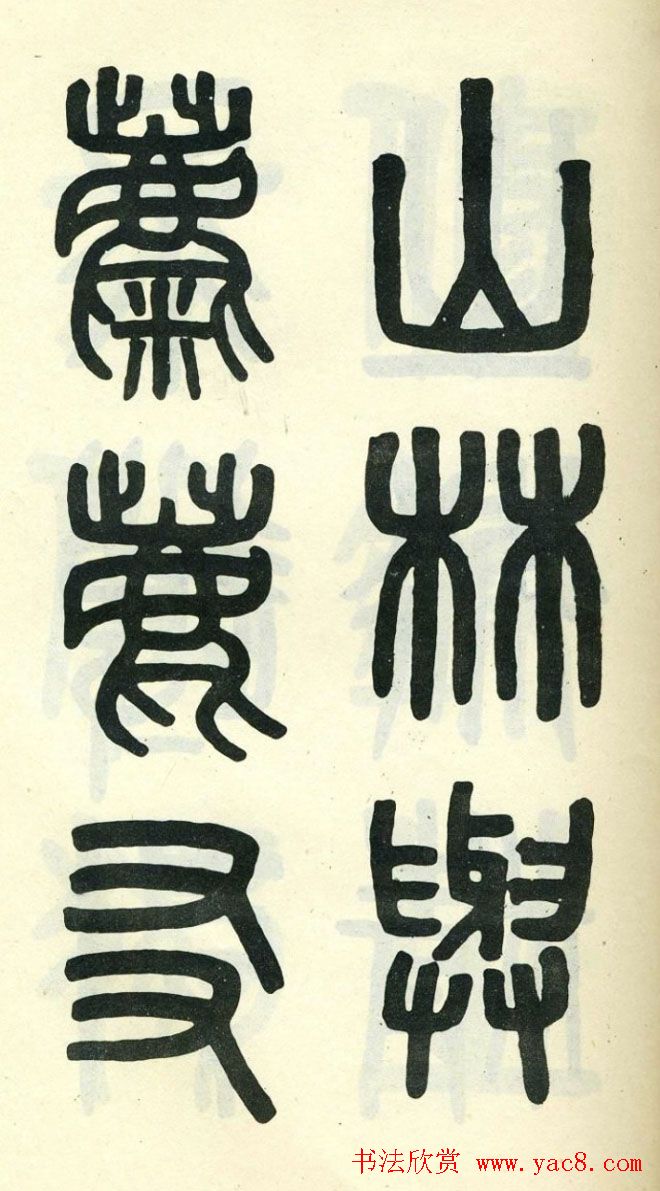 山林與
麋鹿友
书法欣赏 www.yac8.com